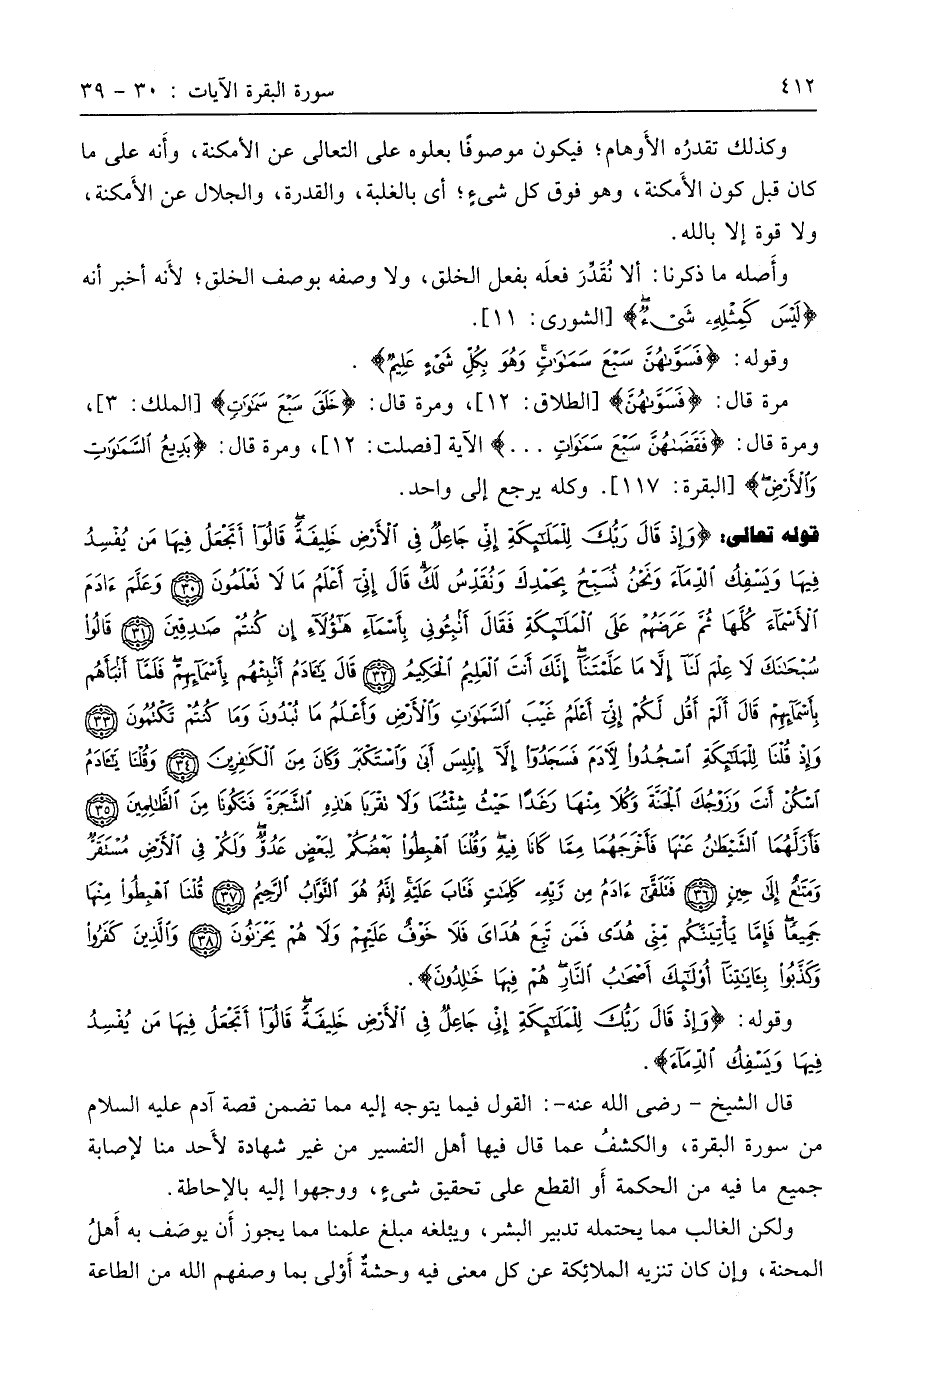 ٤١٢ سورة البقرة الآيات : ٣٠ - ٣٩
وكذلك تقدرُه الأَوهام؛ فيكون موصوفًا بعلوه على التعالى عن الأمكنة، وأَنه على ما
كان قبل كون الأَمكنة، وهو فوق كل شىءٍ؛ أى بالغلبة، والقدرة، والجلال عن الأمكنة،
ولا قوة إلا بالله.
وأَصله ما ذكرنا: ألا نُقَدِّرَ فعلَه بفعل الخلق، ولا وصفه بوصف الخلق؛ لأنه أخبر أنه
﴿لَيْسَ كَمِثْلِهِۦ شَىْءٌۖ﴾ [الشورى: ١١].
وقوله: ﴿فَسَوَّىٰهُنَّ سَبْعَ سَمَٰوَٰتٍۚ وَهُوَ بِكُلِّ شَىْءٍ عَلِيمٌ﴾ .
مرة قال: ﴿فَسَوَّىٰهُنَّ﴾ [الطلاق: ١٢]، ومرة قال: ﴿خَلَقَ سَبْعَ سَمَٰوَٰتٍ﴾ [الملك: ٣]،
ومرة قال: ﴿فَقَضَىٰهُنَّ سَبْعَ سَمَٰوَاتٍ ...﴾ الآية [فصلت: ١٢]، ومرة قال: ﴿بَدِيعُ ٱلسَّمَٰوَٰتِ
وَٱلْأَرْضِۖ﴾ [البقرة: ١١٧]. وكله يرجع إلى واحد.
قوله تعالى: ﴿وَإِذْ قَالَ رَبُّكَ لِلْمَلَٰٓئِكَةِ إِنِّى جَاعِلٌ فِى ٱلْأَرْضِ خَلِيفَةًۖ قَالُوٓا۟ أَتَجْعَلُ فِيهَا مَن يُفْسِدُ
فِيهَا وَيَسْفِكُ ٱلدِّمَآءَ وَنَحْنُ نُسَبِّحُ بِحَمْدِكَ وَنُقَدِّسُ لَكَۖ قَالَ إِنِّىٓ أَعْلَمُ مَا لَا تَعْلَمُونَ ٣٠ وَعَلَّمَ ءَادَمَ
ٱلْأَسْمَآءَ كُلَّهَا ثُمَّ عَرَضَهُمْ عَلَى ٱلْمَلَٰٓئِكَةِ فَقَالَ أَنۢبِـُٔونِى بِأَسْمَآءِ هَٰٓؤُلَآءِ إِن كُنتُمْ صَٰدِقِينَ ٣١ قَالُوا۟
سُبْحَٰنَكَ لَا عِلْمَ لَنَآ إِلَّا مَا عَلَّمْتَنَآۖ إِنَّكَ أَنتَ ٱلْعَلِيمُ ٱلْحَكِيمُ ٣٢ قَالَ يَٰٓـَٔادَمُ أَنۢبِئْهُم بِأَسْمَآئِهِمْۖ فَلَمَّآ أَنۢبَأَهُم
بِأَسْمَآئِهِمْ قَالَ أَلَمْ أَقُل لَّكُمْ إِنِّىٓ أَعْلَمُ غَيْبَ ٱلسَّمَٰوَٰتِ وَٱلْأَرْضِ وَأَعْلَمُ مَا تُبْدُونَ وَمَا كُنتُمْ تَكْتُمُونَ ٣٣
وَإِذْ قُلْنَا لِلْمَلَٰٓئِكَةِ ٱسْجُدُوا۟ لِـَٔادَمَ فَسَجَدُوٓا۟ إِلَّآ إِبْلِيسَ أَبَىٰ وَٱسْتَكْبَرَ وَكَانَ مِنَ ٱلْكَٰفِرِينَ ٣٤ وَقُلْنَا يَٰٓـَٔادَمُ
ٱسْكُنْ أَنتَ وَزَوْجُكَ ٱلْجَنَّةَ وَكُلَا مِنْهَا رَغَدًا حَيْثُ شِئْتُمَا وَلَا تَقْرَبَا هَٰذِهِ ٱلشَّجَرَةَ فَتَكُونَا مِنَ ٱلظَّٰلِمِينَ ٣٥
فَأَزَلَّهُمَا ٱلشَّيْطَٰنُ عَنْهَا فَأَخْرَجَهُمَا مِمَّا كَانَا فِيهِۖ وَقُلْنَا ٱهْبِطُوا۟ بَعْضُكُمْ لِبَعْضٍ عَدُوٌّۖ وَلَكُمْ فِى ٱلْأَرْضِ مُسْتَقَرٌّ
وَمَتَٰعٌ إِلَىٰ حِينٍ ٣٦ فَتَلَقَّىٰٓ ءَادَمُ مِن رَّبِّهِۦ كَلِمَٰتٍ فَتَابَ عَلَيْهِۚ إِنَّهُۥ هُوَ ٱلتَّوَّابُ ٱلرَّحِيمُ ٣٧ قُلْنَا ٱهْبِطُوا۟ مِنْهَا
جَمِيعًاۖ فَإِمَّا يَأْتِيَنَّكُم مِّنِّى هُدًى فَمَن تَبِعَ هُدَاىَ فَلَا خَوْفٌ عَلَيْهِمْ وَلَا هُمْ يَحْزَنُونَ ٣٨ وَٱلَّذِينَ كَفَرُوا۟
وَكَذَّبُوا۟ بِـَٔايَٰتِنَآ أُو۟لَٰٓئِكَ أَصْحَٰبُ ٱلنَّارِۖ هُمْ فِيهَا خَٰلِدُونَ﴾.
وقوله: ﴿وَإِذْ قَالَ رَبُّكَ لِلْمَلَٰٓئِكَةِ إِنِّى جَاعِلٌ فِى ٱلْأَرْضِ خَلِيفَةًۖ قَالُوٓا۟ أَتَجْعَلُ فِيهَا مَن يُفْسِدُ
فِيهَا وَيَسْفِكُ ٱلدِّمَآءَ﴾ .
قال الشيخ - رضى الله عنه-: القول فيما يتوجه إليه مما تضمن قصة آدم عليه السلام
من سورة البقرة، والكشفُ عما قال فيها أهل التفسير من غير شهادة لأحد منا لإصابة
جميع ما فيه من الحكمة أَو القطع على تحقيق شىءٍ، ووجهوا إليه بالإحاطة.
ولكن الغالب مما يحتمله تدبير البشر، ويبْلغه مبلغ علمنا مما يجوز أَن يوصَف به أَهلُ
المحنة، وإن كان تنزيه الملائِكة عن كل معنى فيه وحشةٌ أَوْلى بما وصفهم الله من الطاعة